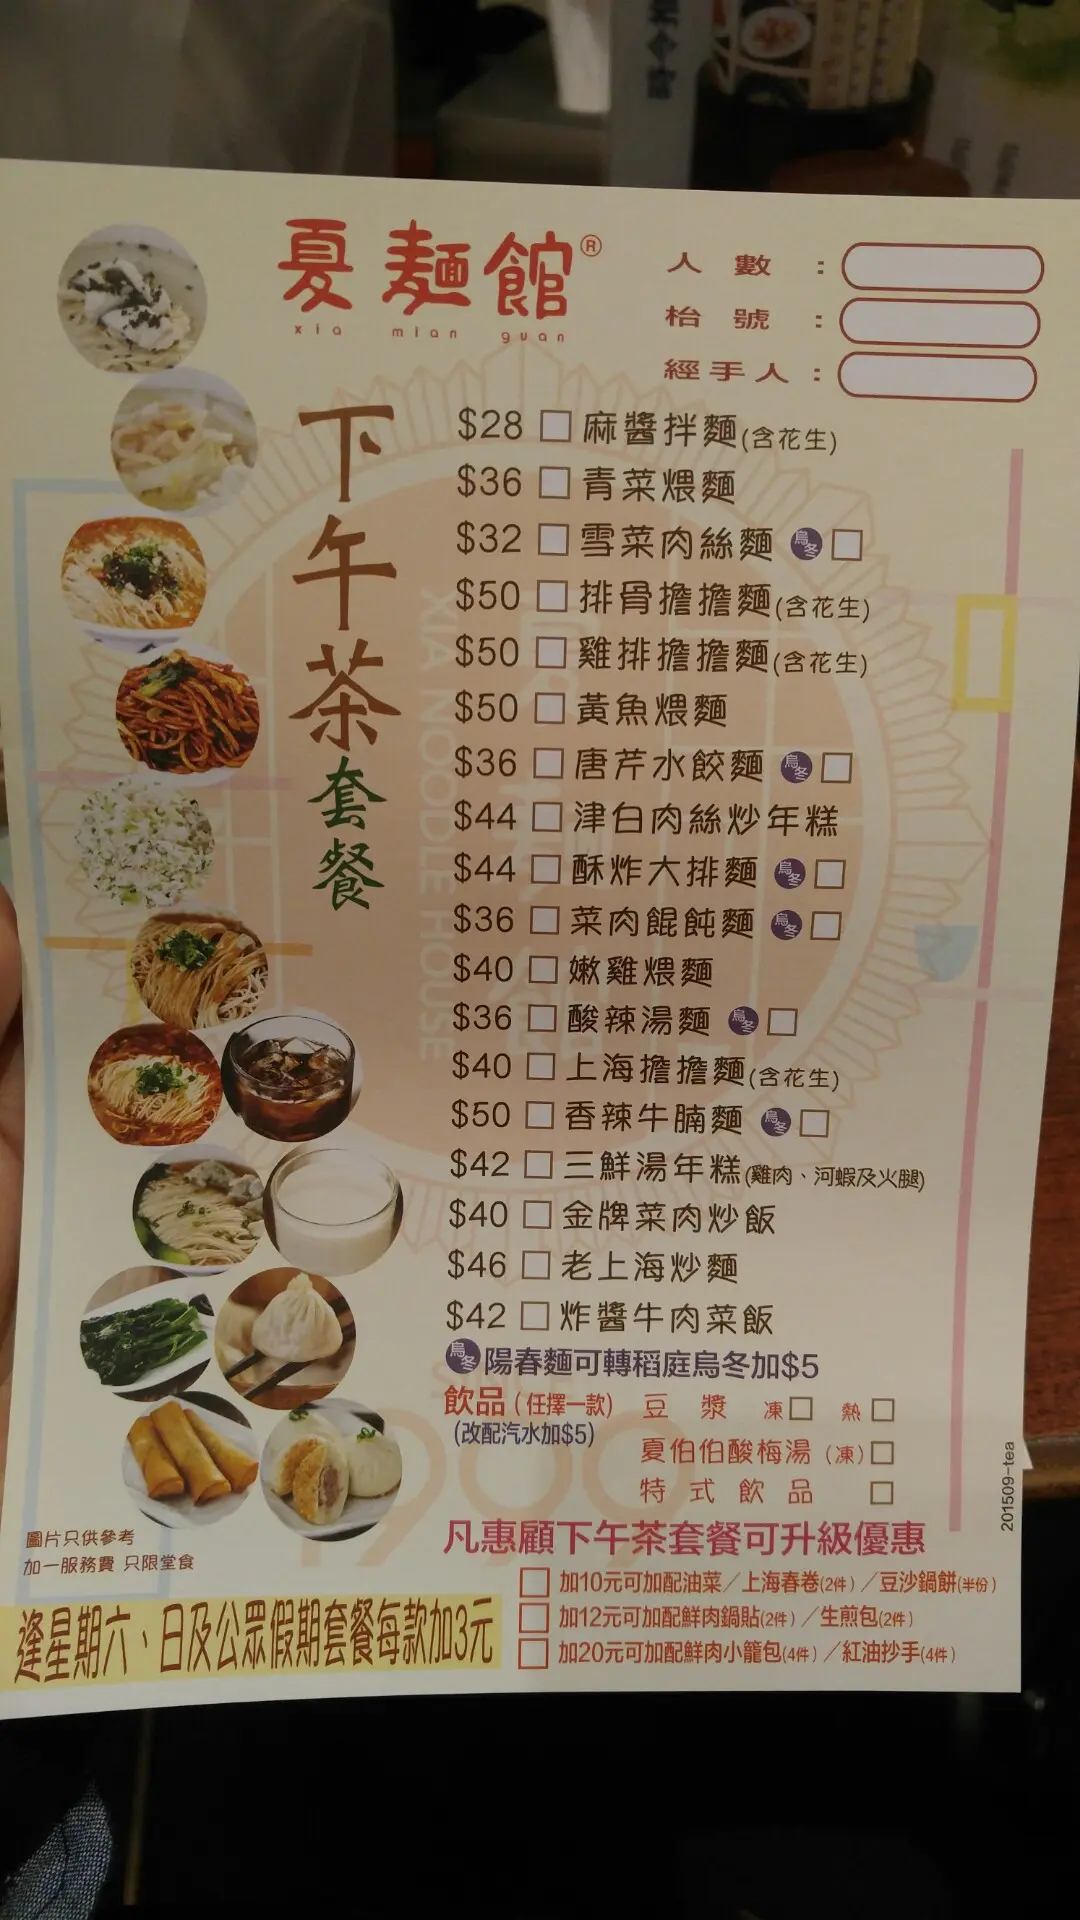 夏麵館®
xia mian guan
人數：
枱號：
經手人：
下午茶套餐
$28 麻醬拌麵(含花生)
$36 青菜煨麵
$32 雪菜肉絲麵 烏冬
$50 排骨擔擔麵(含花生)
$50 雞排擔擔麵(含花生)
$50 黃魚煨麵
$36 唐芹水餃麵 烏冬
$44 津白肉絲炒年糕
$44 酥炸大排麵 烏冬
$36 菜肉餛飩麵 烏冬
$40 嫩雞煨麵
$36 酸辣湯麵 烏冬
$40 上海擔擔麵(含花生)
$50 香辣牛腩麵 烏冬
$42 三鮮湯年糕(雞肉、河蝦及火腿)
$40 金牌菜肉炒飯
$46 老上海炒麵
$42 炸醬牛肉菜飯
烏冬 陽春麵可轉稻庭烏冬加$5
飲品(任擇一款) 豆漿 凍 熱
(改配汽水加$5)
夏伯伯酸梅湯(凍)
特式飲品
凡惠顧下午茶套餐可升級優惠
加10元可加配油菜／上海春卷(2件)／豆沙鍋餅(半份)
加12元可加配鮮肉鍋貼(2件)／生煎包(2件)
加20元可加配鮮肉小籠包(4件)／紅油抄手(4件)
圖片只供參考
加一服務費 只限堂食
逢星期六、日及公眾假期套餐每款加3元
201509-tea
XIA NOODLE HOUSE
1999